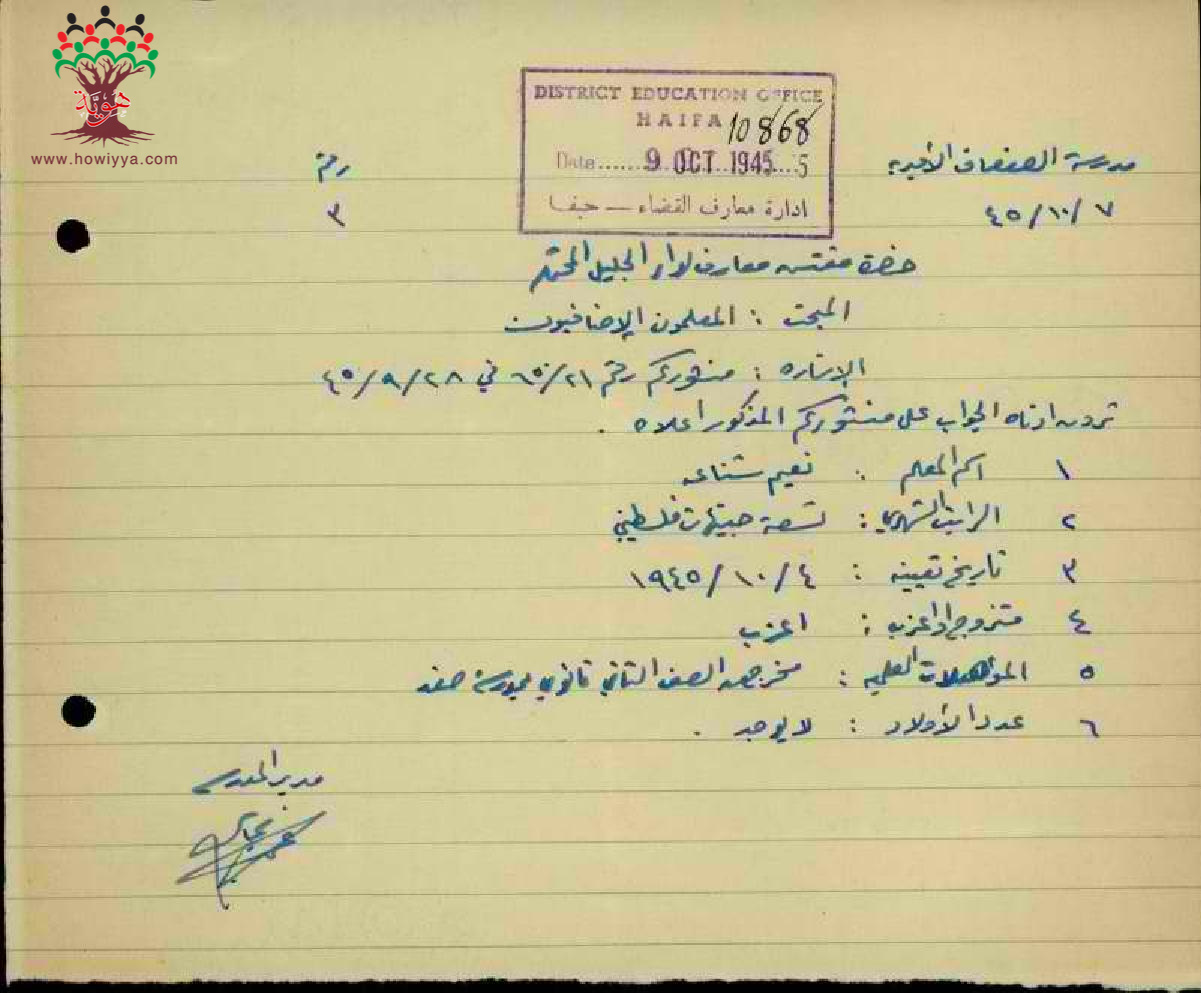 هوية
www.howiyya.com
DISTRICT EDUCATION OFFICE
HAIFA
10868
Date...... 9 OCT 1945...5
ادارة معارف القضاء — حيفا
مدرسة الصفصاف الأميرية
رقم
٤٥/١٠/٧
٣
حضرة مفتش معارف لواء الجليل المحترم
المبحث : المعلمون الإضافيون
الإشارة : منشوركم رقم ٦٥/٢١ في ٤٥/٩/٢٨
تردن ادناه الجواب على منشوركم المذكور اعلاه .
١ اسم المعلم : نعيم شناعه
٢ الراتب الشهري : تسعة جنيهات فلسطيني
٣ تاريخ تعيينه : ١٩٤٥/١٠/٤
٤ متزوج او اعزب : اعزب
٥ المؤهلات العلمية : الصف الثاني ثانوي بمدرسة صفد
٦ عدد الأولاد : لا يوجد .
مدير المدرسة